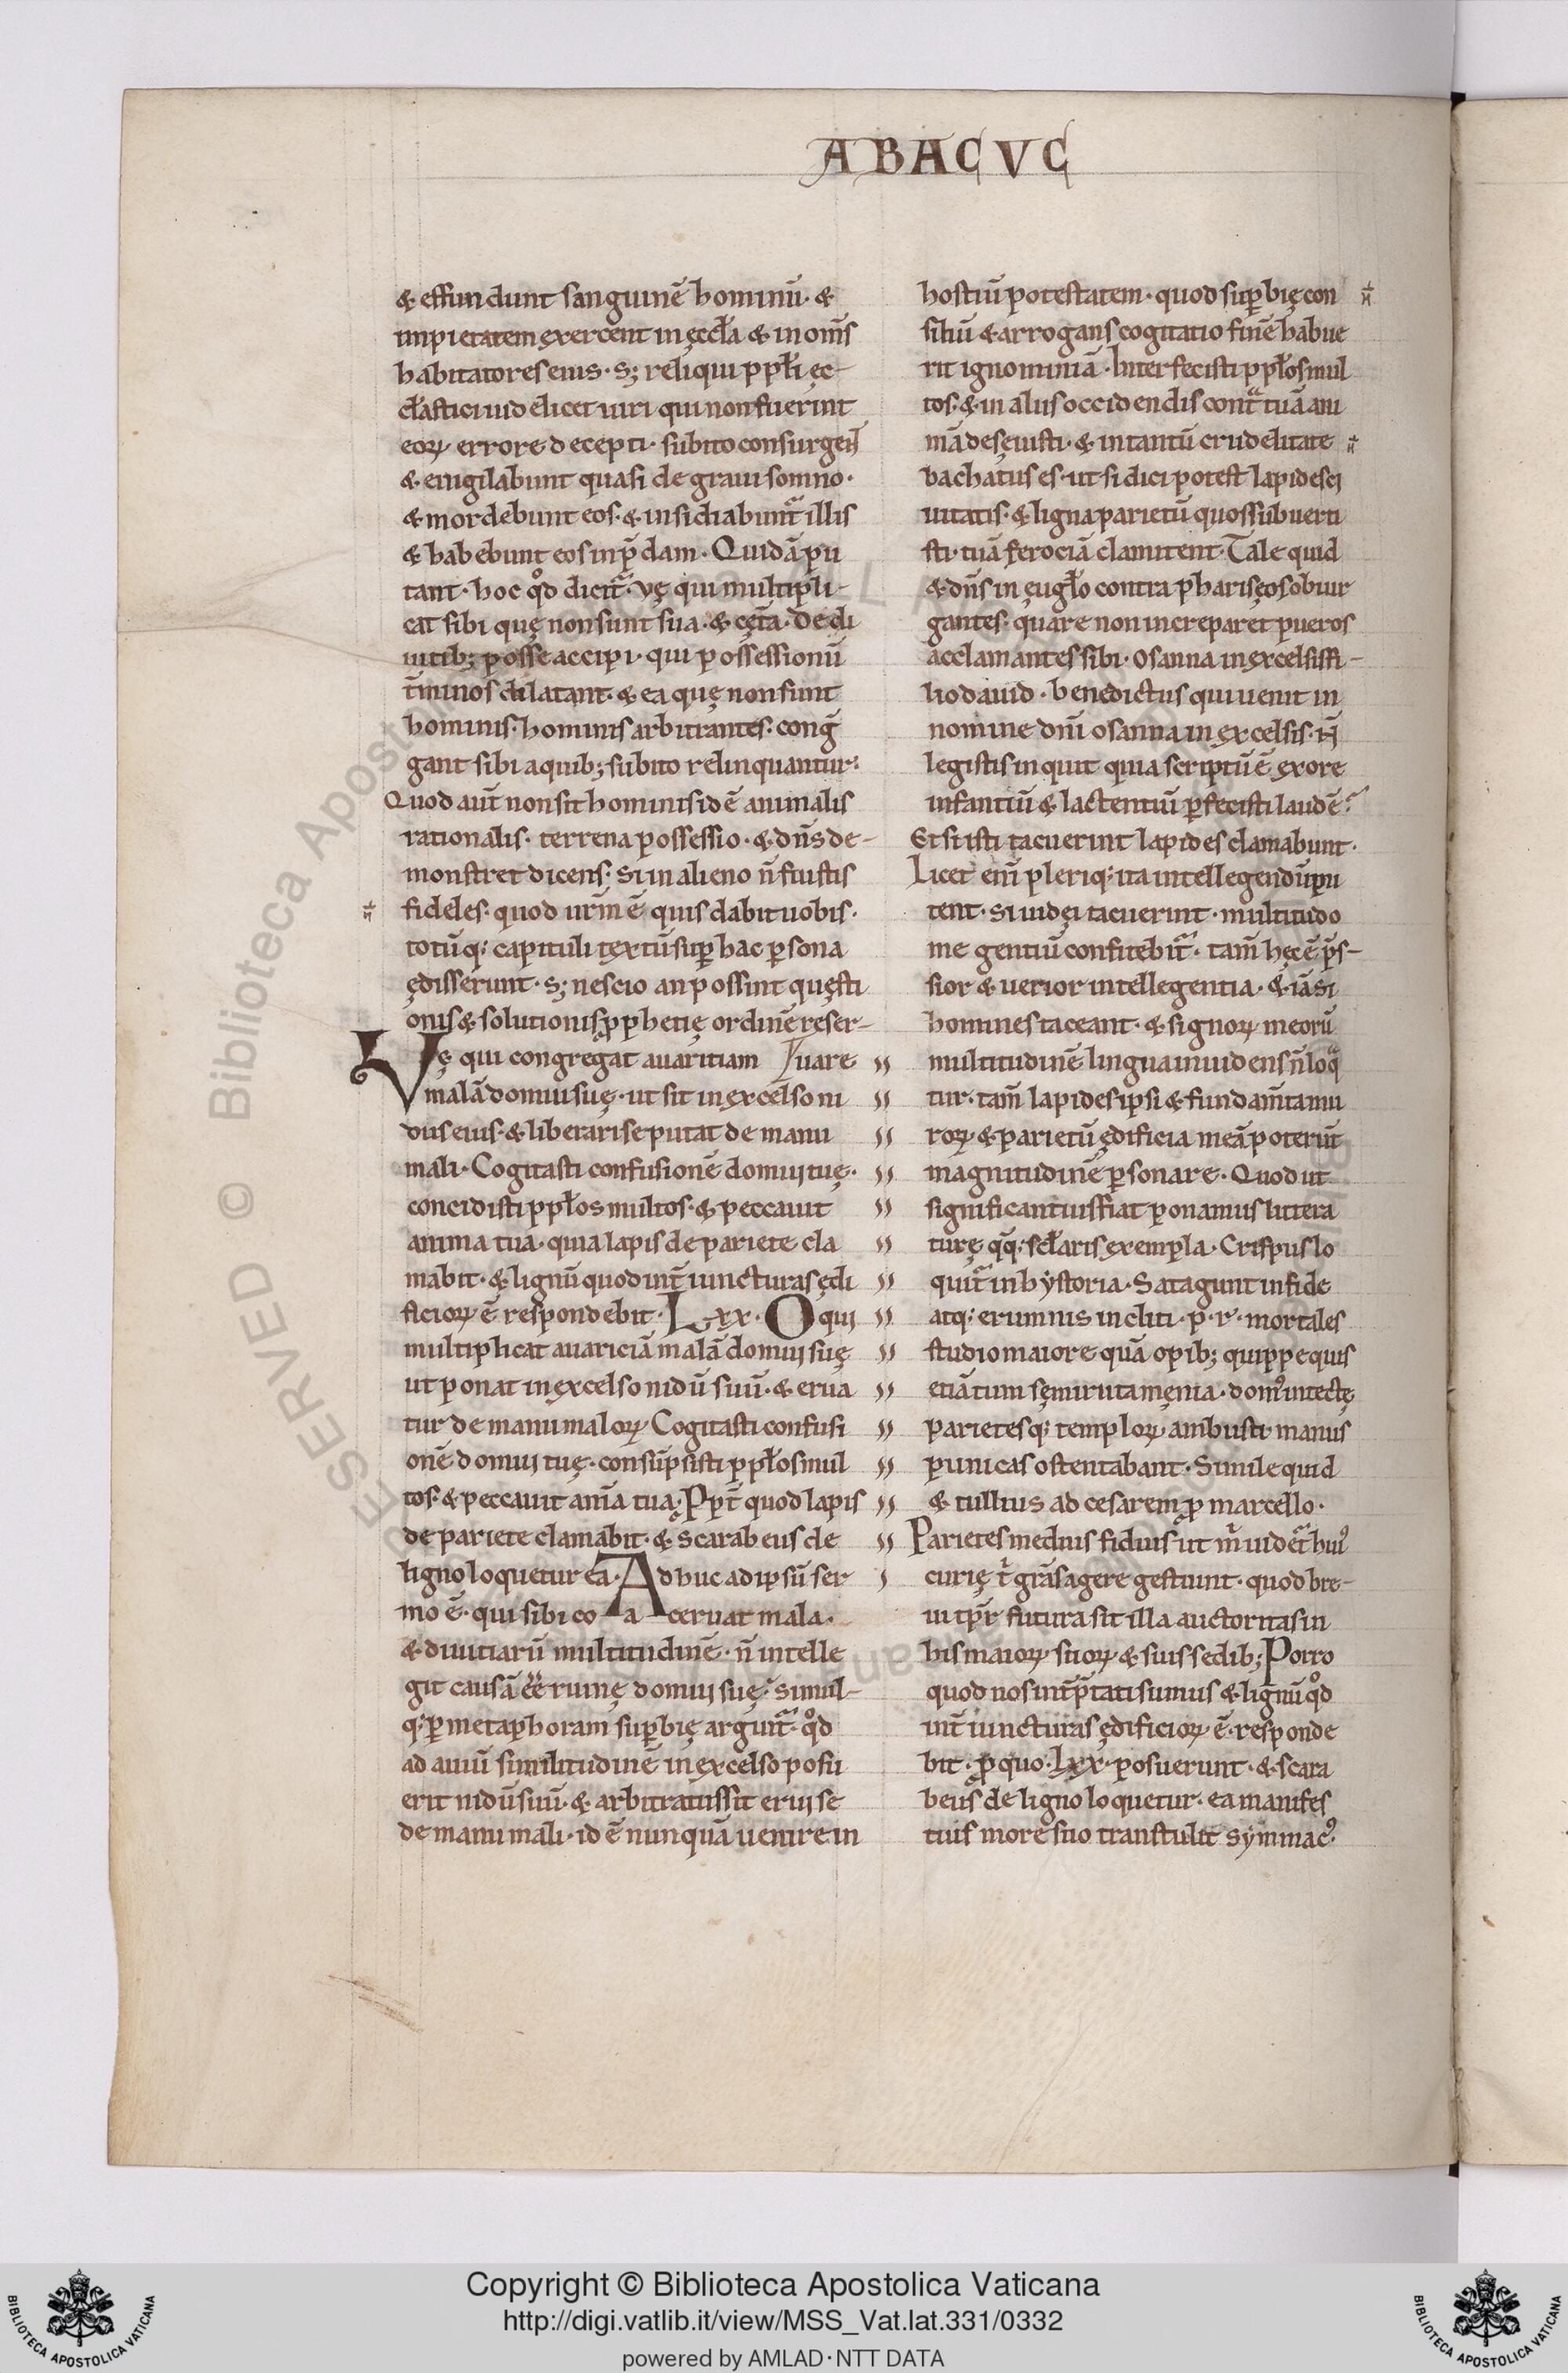 ABACVC
& effundunt sanguinē hominū· &
impietatem exercent in ęccl̄a & in om̄s
habitatores eius· s; reliqui ppl̄i ęc-
cl̄astici uidelicet uiri qui non fuerint
eoꝝ errore decepti· subito consurgen̄t
& euigilabunt quasi de graui somno·
& mordebunt eos· & insidiabunt᷑ illis
& habebunt eos in p̄dam· Quidā pu
tant· hoc qd̊ dicit᷑· vę qui multipli-
cat sibi quę non sunt sua· & cęt̄a· de di
uitib; posse accipi· qui possessionū
t̄minos dilatant· & ea quę non sunt
hominis· hominis arbitrantes· conḡ
gant sibi a quib; subito relinquantur·
Quod aut̄ non sit hominis id ē animalis
rationalis· terrena possessio· & dn̄s de-
monstret dicens· Si in alieno n̄ fuistis
fideles· quod ur̄m ē quis dabit uobis·
totūq; capituli textū sup̱ hac p̱sona
ędisserunt· s; nescio an possint quęsti
onis & solutionis ꝓphetię ordinē reser-
Vę qui congregat auaritiam uare
malā domui suę· ut sit in excelso ni
dus eius· & liberari se putat de manu
mali· Cogitasti confusionē domui tuę·
concidisti ppl̄os multos· & peccauit
anima tua· quia lapis de pariete cla
mabit· & lignū quod int̄ iuncturas ędi
ficioꝝ ē respondebit· Lxx· O qui
multiplicat auariciā malā domui suę
ut ponat in excelso nidū suū· & erua
tur de manu maloꝝ Cogitasti confusi
onē domui tuę· consūpsisti ppl̄os mul
tos· & peccauit anīa tua· Ppt̄ quod lapis
de pariete clamabit· & scarabeus de
ligno loquetur ea· Adhuc ad ipsū ser
mo ē· qui sibi coaceruat mala·
& diuitiarū multitudinē· n̄ intelle
git causā ēē ruinę domui suę· simul-
q; p̱ metaphoram sup̱bię arguit᷑· qd̊
ad auiū similitudinē in excelso posu
erit nidū suū· & arbitratus sit erui se
de manu mali· id ē nunquā uenire in
hostiū potestatem· quod sup̱bię con
siliū & arrogans cogitatio finē habue
rit ignominiā· Interfecisti ppl̄os mul
tos· & in aliis occidendis contͣ tuā ani
mā deseuisti· & in tantū crudelitate
bachatus es· ut si dici potest lapides ci
uitatis· & ligna parietū quos subuerti
sti· tuā ferociā clamitent· Tale quid
& dn̄s in eugl̄o contra phariseos obiur
gantes· quare non increparet pueros
acclamantes sibi· osanna in excelsis fi-
lio dauid· benedictus qui uenit in
nomine dn̄i osanna in excelsis· N̄
legistis inquit quia scriptū ē ex ore
infantiū & lactentiū p̱fecisti laudē·
Et si isti tacuerint lapides clamabunt·
Licet enī pleriq; ita intellegendū pu
tent· si iudei tacuerint· multitudo
me gentiū confitebit᷑· tam̄ hęc ē p̄s-
sior & uerior intellegentia· & iā si
homines taceant· & signoꝝ meorū
multitudinē lingua inuidens n̄ loqͣ
tur· tam̄ lapides ipsi & fundam̄ta mu
roꝝ & parietū ędificia meā poterūt
magnitudinē p̱sonare· Quod ut
significantius fiat ponamus littera
turę qq; scl̄aris exempla· Crispus lo
quit᷑ in hystoria· Sataguntin fide
atq; erumnis incliti· p· r· mortales
studio maiore quā opib; quippe quis
etiā tum sęmiruta męnia· dom᷒ intectę
parietesq; temploꝝ ambusti manus
punicas ostentabant· Simile quid
& tullius ad cesarem ꝓ marcello·
Parietes medius fidius ut m̄ uidet᷑ hui᷒
curię t̄ gr̄as agere gestiunt· quod bre-
ui tp̄r futura sit illa auctoritas in
his maioꝝ suoꝝ & suis sedib; Porro
quod nos int̄p̄tati sumus & lignū qd̊
int̄ iuncturas ędificioꝝ ē· responde
bit· ꝓ quo· Lxx· posuerunt· & scara
beus de ligno loquetur· ea manifes
tius more suo transtulit symmac᷒·
Copyright © Biblioteca Apostolica Vaticana
http://digi.vatlib.it/view/MSS_Vat.lat.331/0332
powered by AMLAD·NTT DATA
BIBLIOTECA APOSTOLICA VATICANA
BIBLIOTECA APOSTOLICA VATICANA